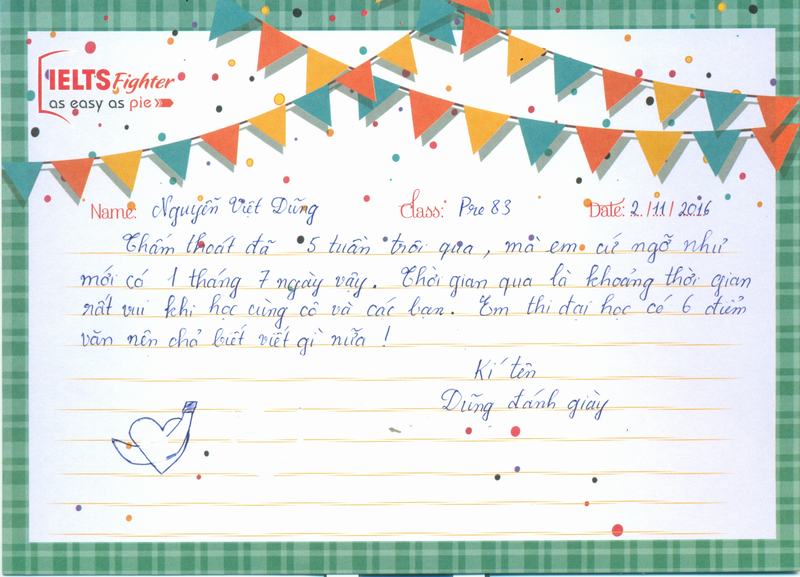 IELTS Fighter
as easy as pie
Name: Nguyễn Việt Dũng Class: Pre 83 Date: 2/11/2016
Thấm thoát đã 5 tuần trôi qua, mà em cứ ngỡ như
mới có 1 tháng 7 ngày vậy. Thời gian qua là khoảng thời gian
rất vui khi học cùng cô và các bạn. Em thi đại học có 6 điểm
văn nên chả biết viết gì nữa!
Kí tên
Dũng đánh giày